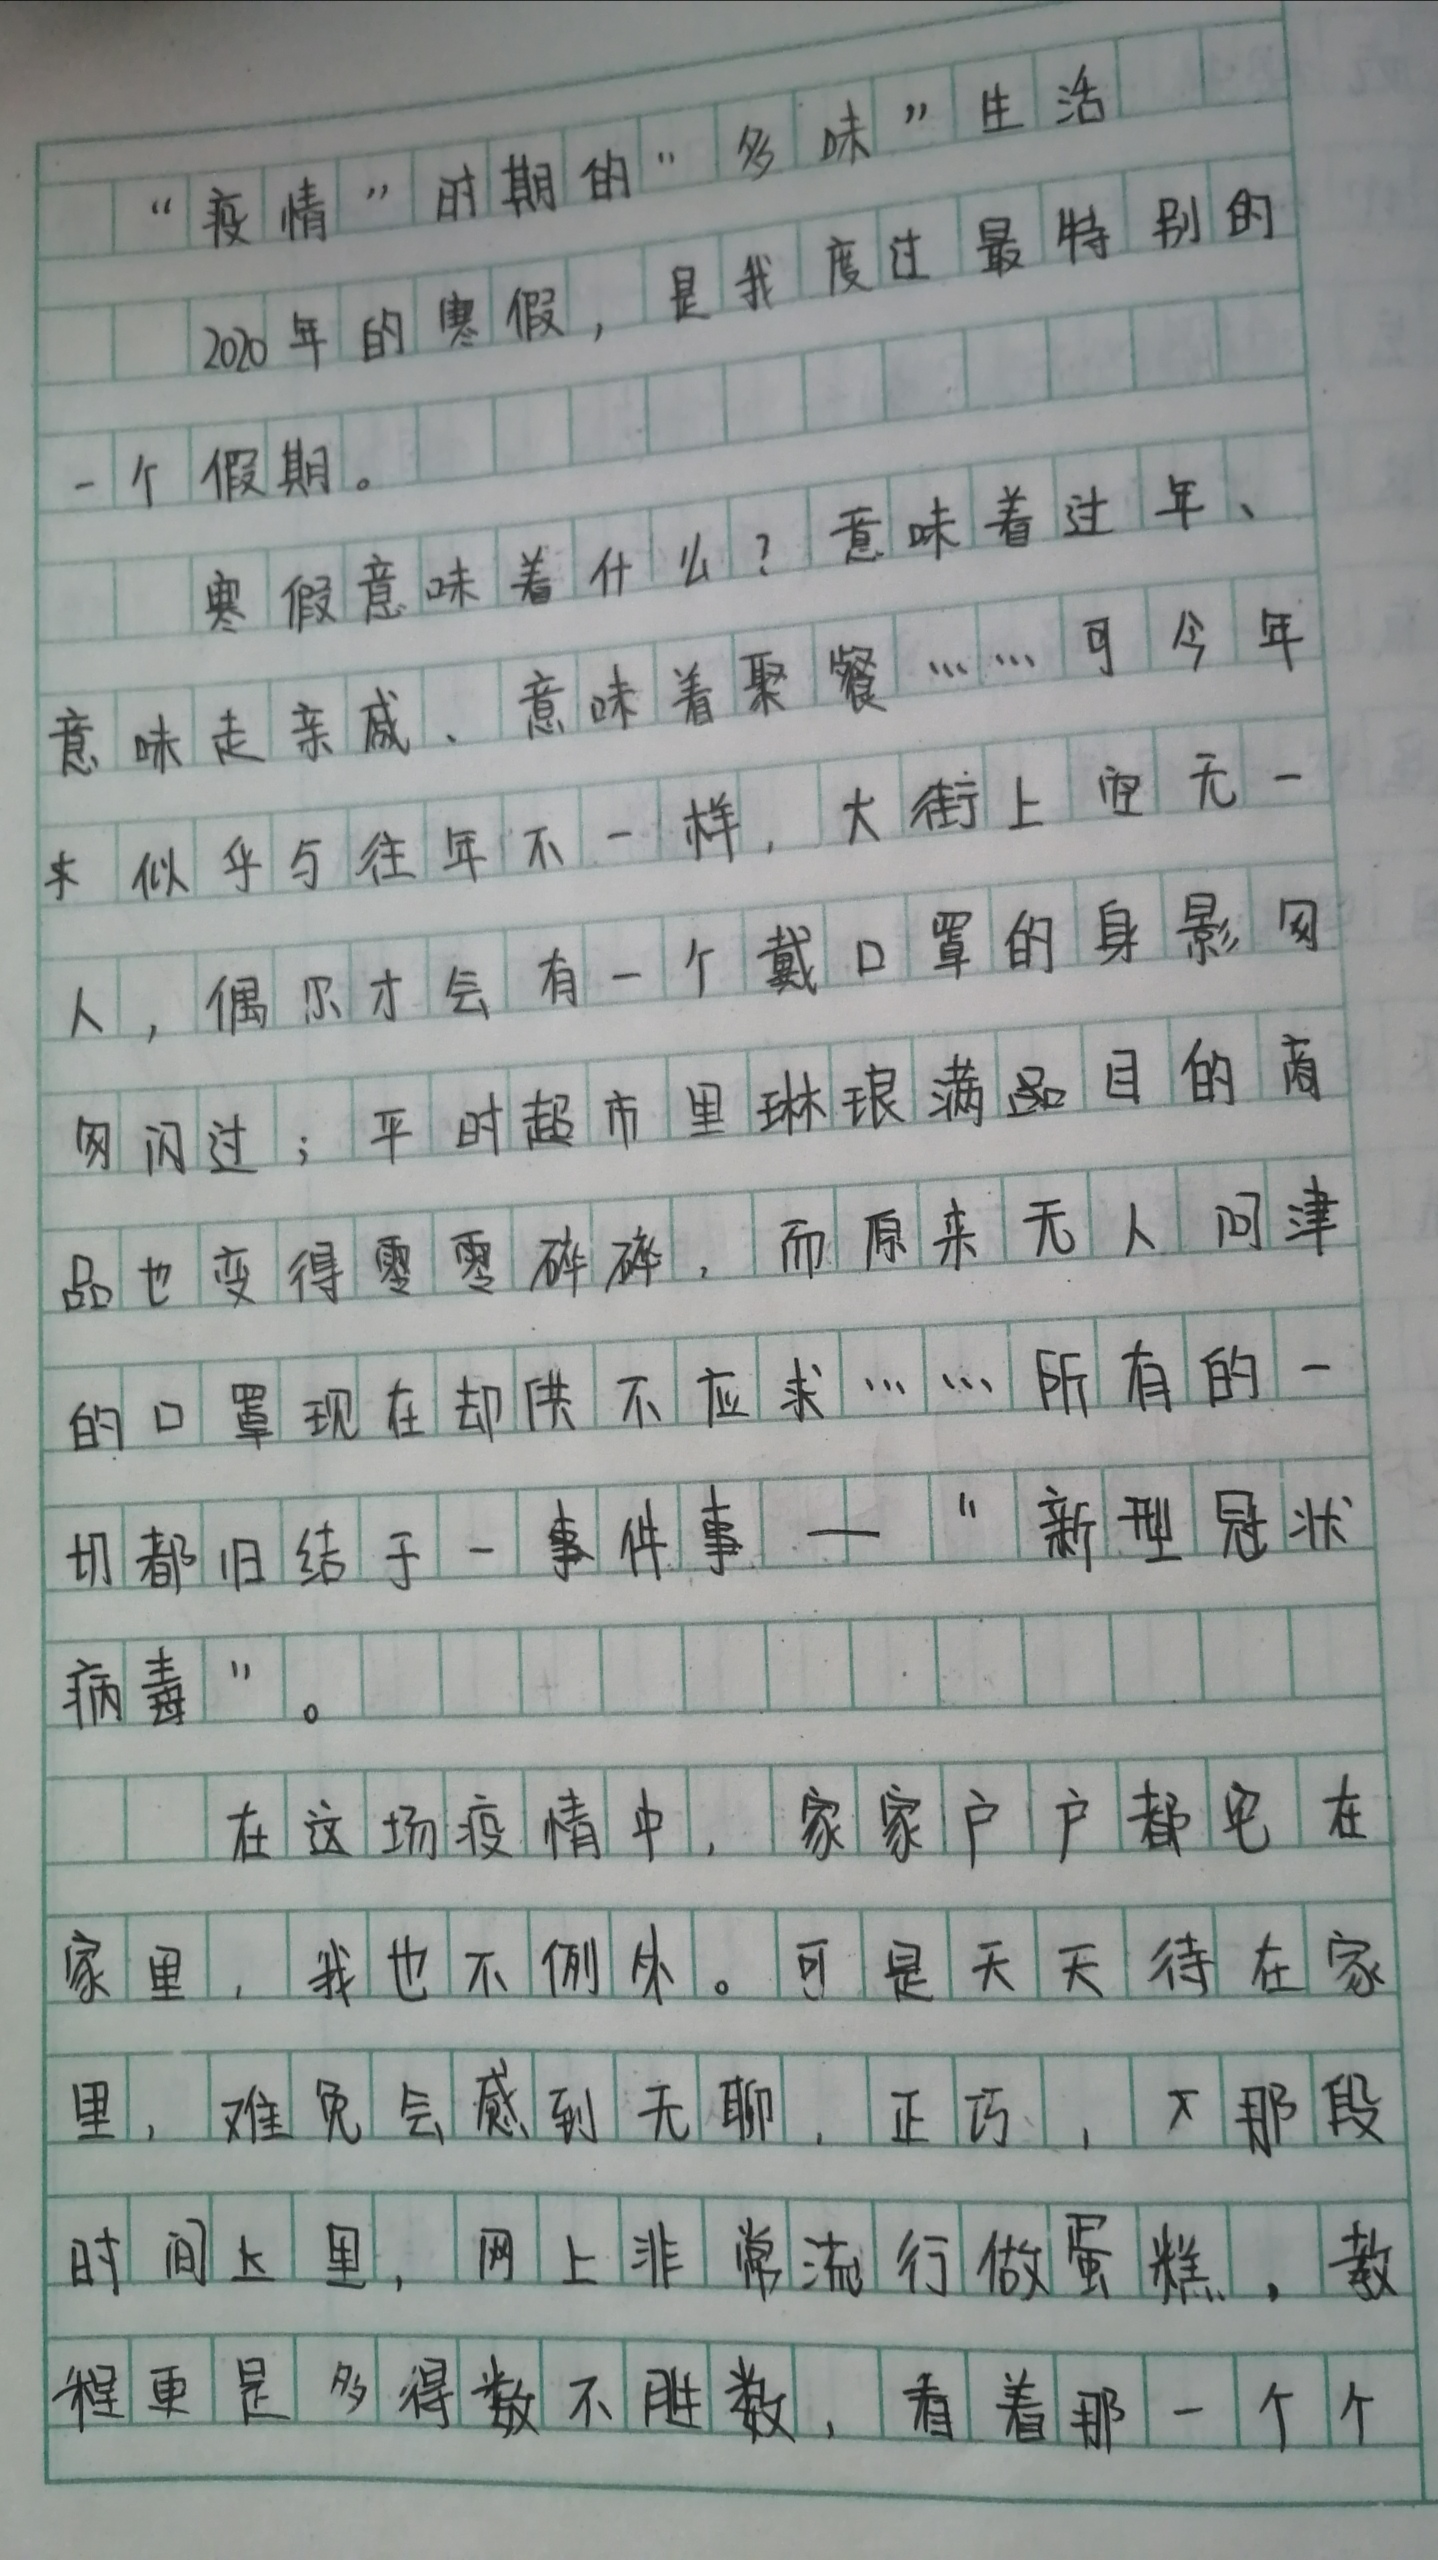 “疫情”时期的“多味”生活
2020年的寒假，是我度过最特别的
一个假期。
寒假意味着什么？意味着过年、
意味走亲戚、意味着聚餐……可今年
似乎与往年不一样，大街上空无一
人，偶尔才会有一个戴口罩的身影匆
匆闪过；平时超市里琳琅满目的商
品也变得零零碎碎，而原来无人问津
的口罩现在却供不应求……所有的一
切都归结于一事件事——“新型冠状
病毒”。
在这场疫情中，家家户户都宅在
家里，我也不例外。可是天天待在家
里，难免会感到无聊，正巧，那段
时间里，网上非常流行做蛋糕，教
程更是多得数不胜数，看着那一个个